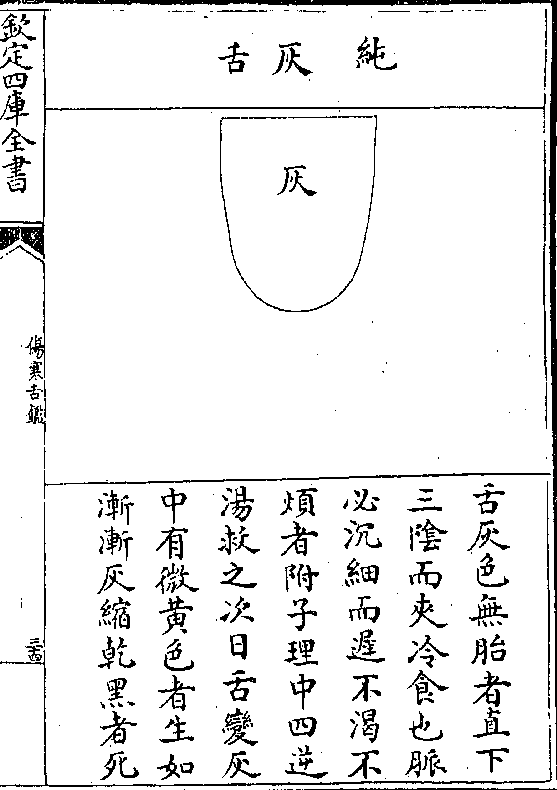 純灰舌
灰
舌灰色無胎者直下
三陰而夾冷食也脈
必沉細而遲不渴不
煩者附子理中四逆
湯救之次日舌變灰
中有微黃色者生如
漸漸灰縮乾黑者死
欽定四庫全書
傷寒舌鑑
三四